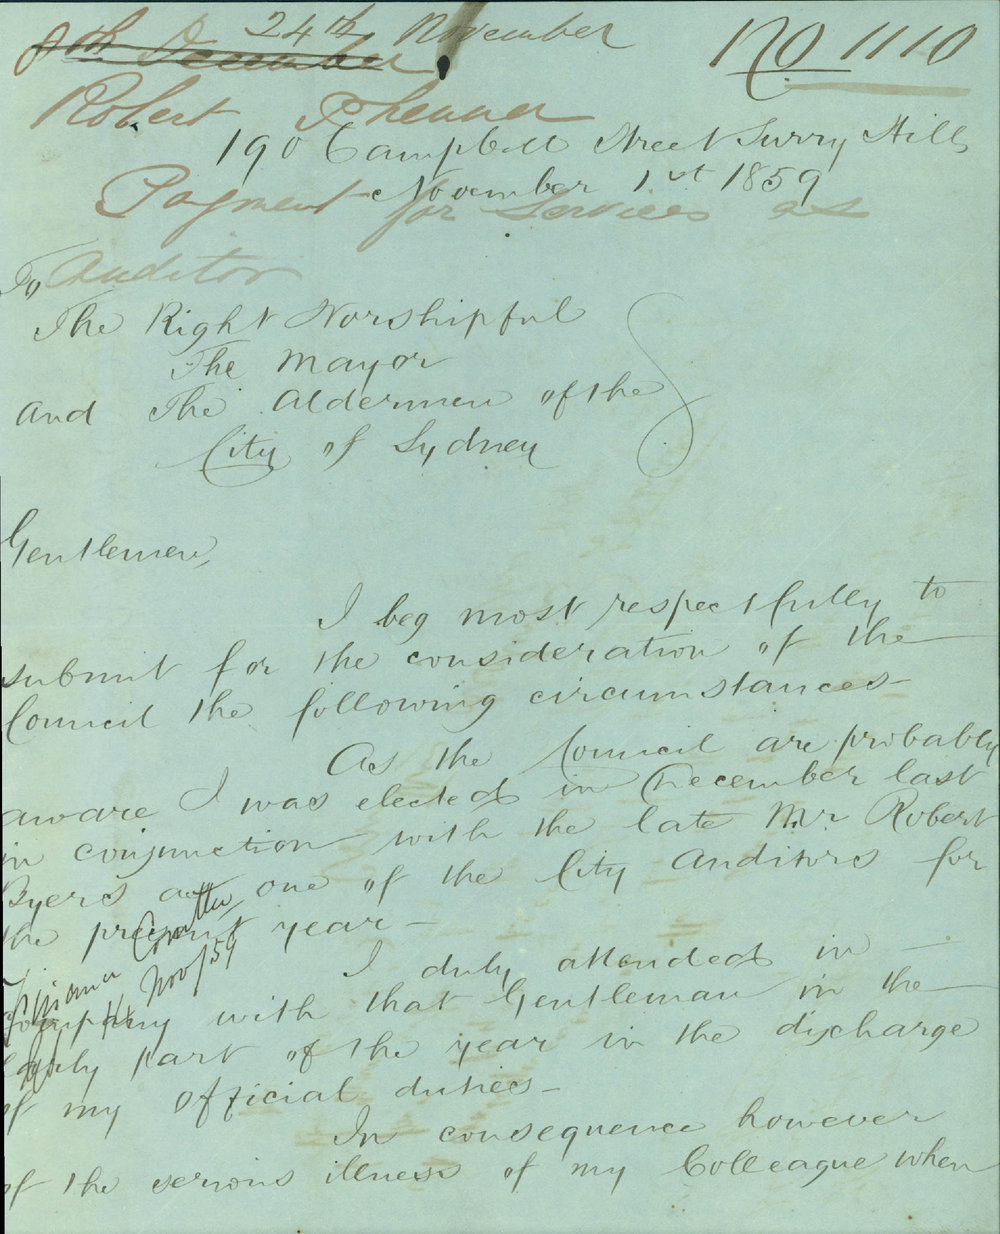 24th November
8th December
No 1110
Robert
190 Campbell Street Surry Hills
November 1st 1859
Payment for Services as
Auditor
To
The Right Worshipful
The Mayor
and The Aldermen of the
City of Sydney
Gentlemen,
I beg most respectfully to
submit for the consideration of the
Council the following circumstances-
As the Council are probably
aware I was elected in December last
in conjunction with the late Mr Robert
Byers as one of the City Auditors for
the present year-
Finance Comttee
14 Nov/59
I duly attended in
Company with that Gentleman in the
early part of the year in the discharge
of my official duties-
In consequence however
of the serious illness of my Colleague when